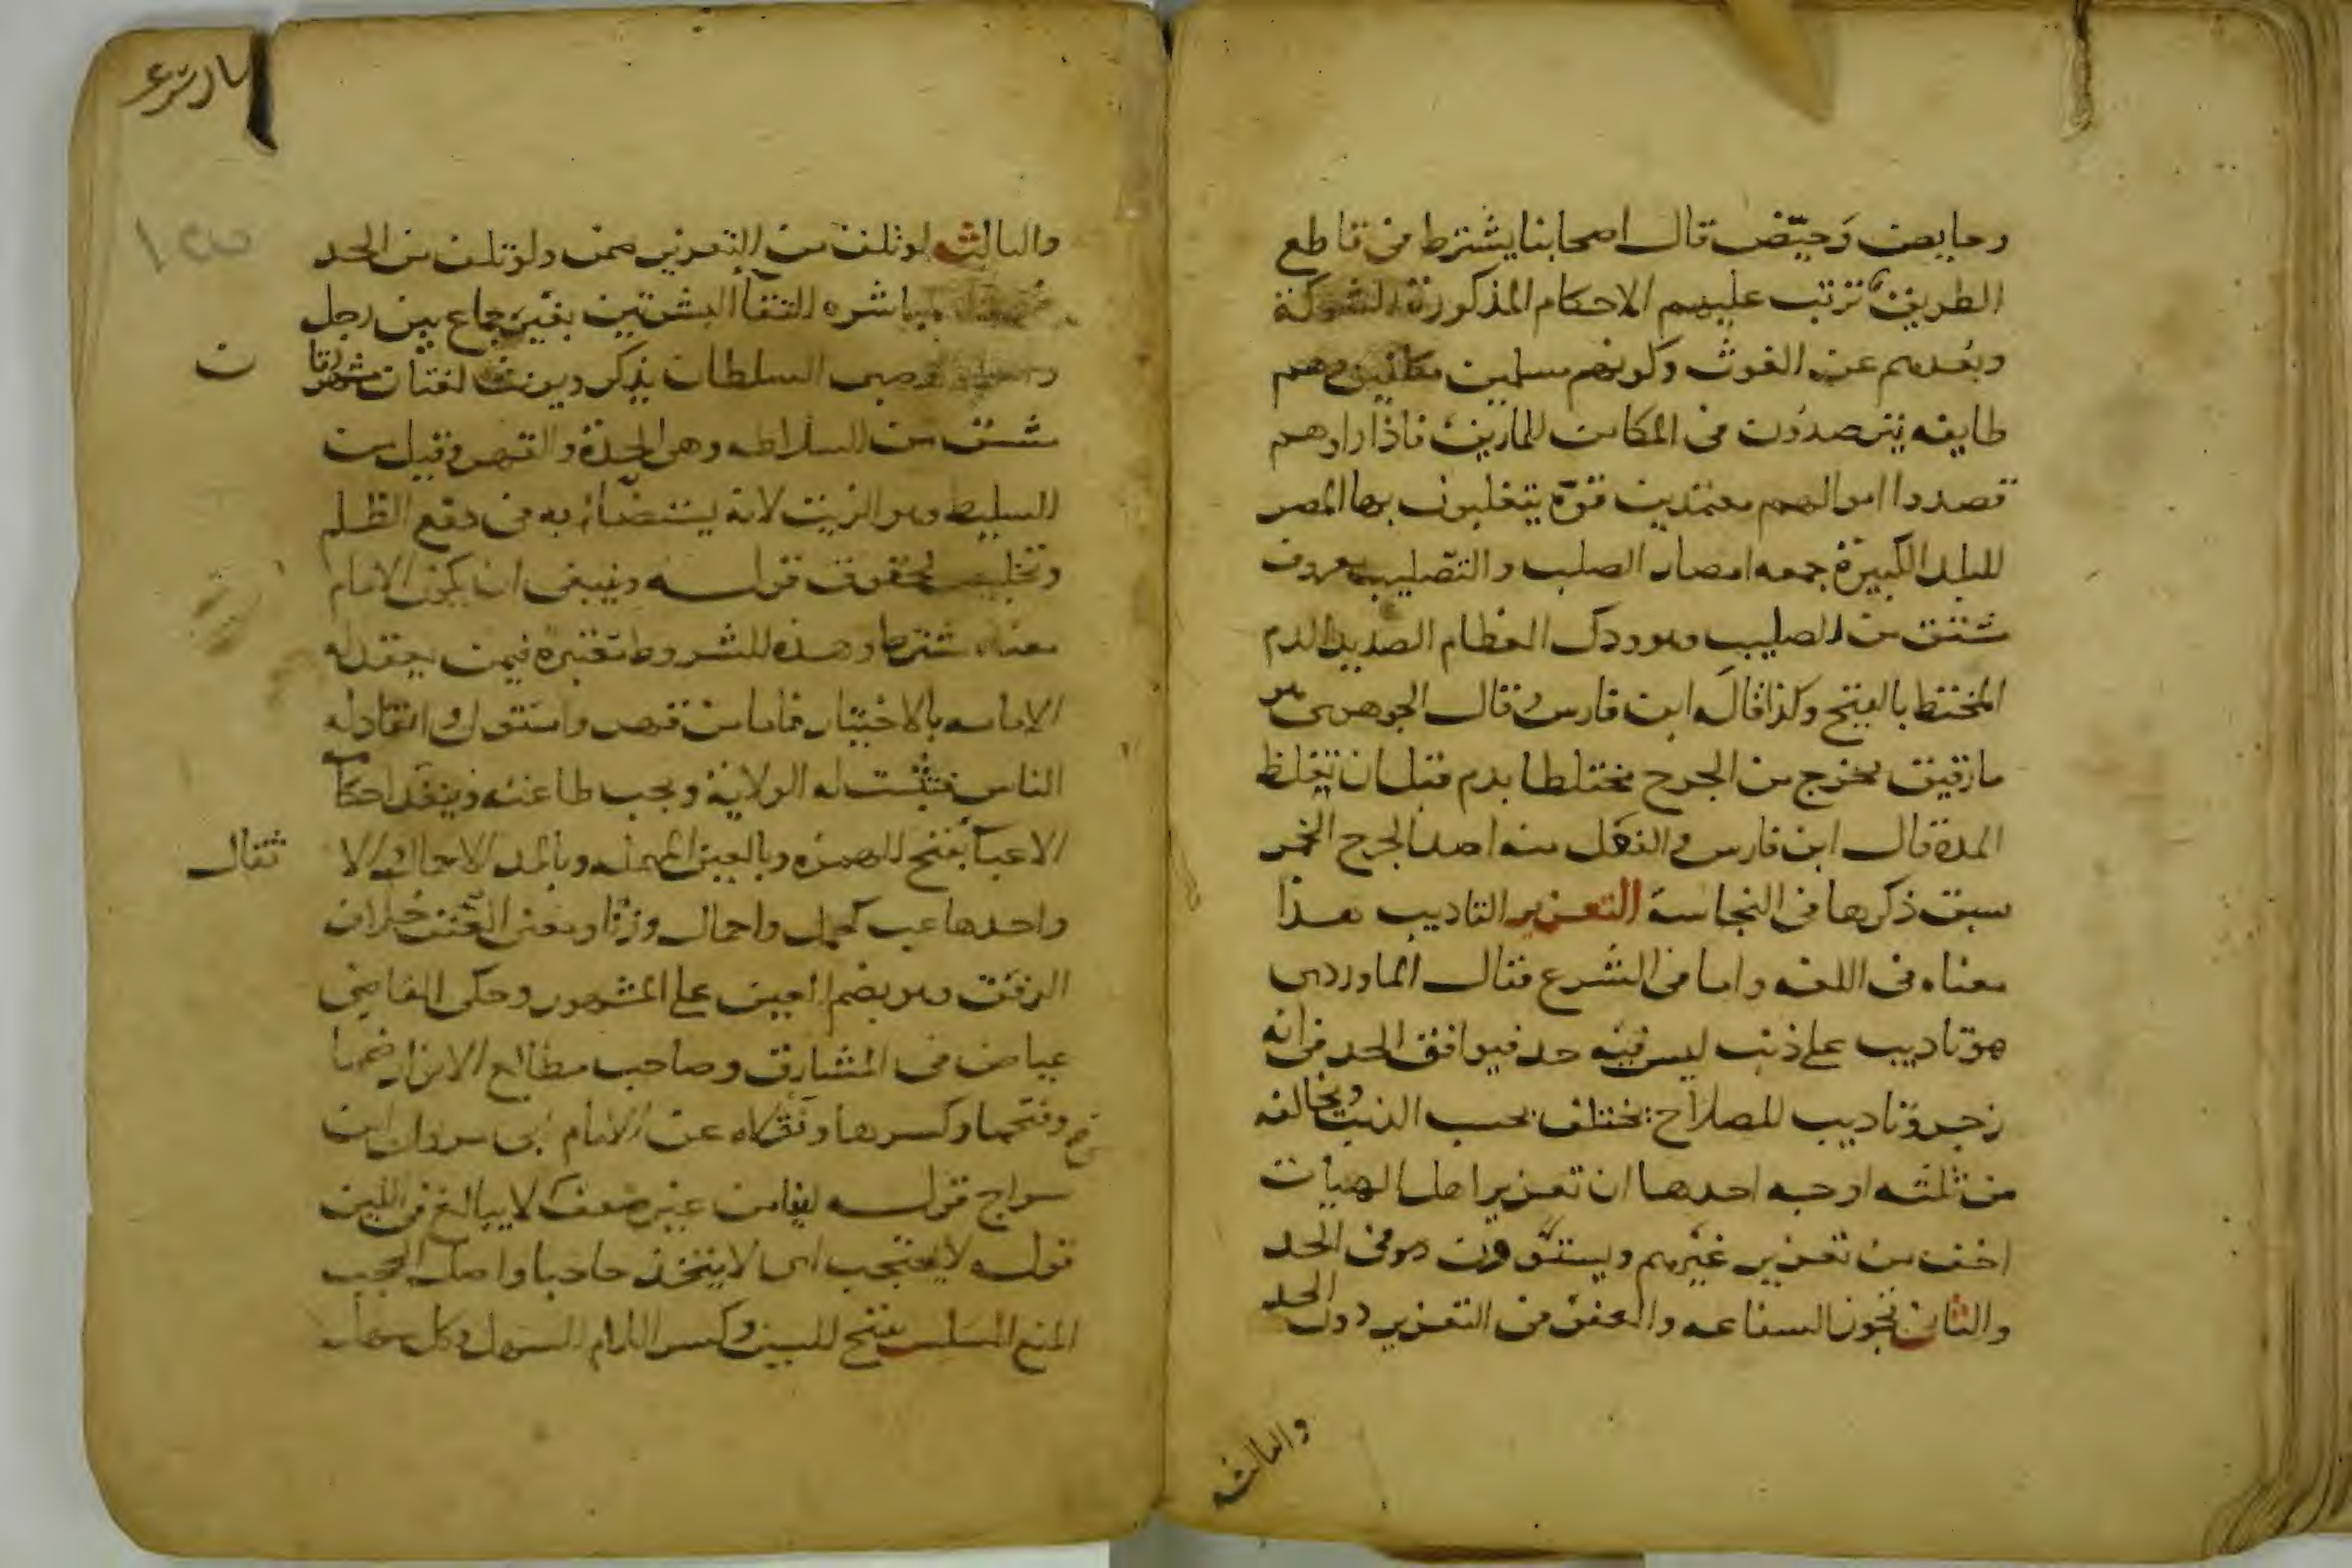 وحايض وحيّض قال اصحابنا يشترط في قاطع
الطريق ترتب عليهم الاحكام المذكورة الشوكة
وبُعدهم عن الغوث وكونهم مسلمين مكلفين وهم
طايفه يترصدون في المكامن للمارين فاذا راوهم
قصدوا اموالهم معتمدين قوّة يتغلبون بها المصر
البلد الكبيرة جمعه امصار الصلب والتصليب معروف
مشتق من الصليب وهو ودك العظام الصديد الدم
المختلط بالقيح وكذا قاله ابن فارس وقال الجوهري هو
ما رقيق يخرج من الجرح مختلطا بدم قبل ان تغلظ
المدة قال ابن فارس والفعل منه اصد الجرح الخمر
سبق ذكرها في النجاسة التعزير التاديب هذا
معناه في اللغه واما في الشرع فقال الماوردي
هو تاديب على ذنب ليس فيه حد فيوافق الحد في انه
زجر وتاديب للصلاح يختلف بحسب الذنب ويخالفه
من ثلثه اوجه احدها ان تعزير اهل الهيات
اخف من تعزير غيرهم ويستوون في الحد
والثاني تجوز الشفاعه والعفو في التعزير دون الحد
والثالثه
والثالث لو تلف من التعزير ضمن ولو تلف من الحد
مباشره التقا البشرتين بغير جماع بين رجل
السلطان يذكر ويونث لغتان مشهورتان
مشتق من السلاطه وهي الحدة والقهر وقيل من
السليط وهو الزيت لانه يستضاء به في دفع الظلم
وتخليص الحقوق قوله وينبغي ان يكون الامام
معناه يشترط وهذه الشروط معتبرة فيمن يعقد له
الامامه بالاختيار فاما من قهر واستولى وانقاد له
الناس فتثبت له الولاية ويجب طاعته وينفذ احكامه
الاعبآ بفتح الهمزه وبالعين المهمله وبالمد الاحمال والاثقال
واحدها عب كحمل واحمال وزنا ومعنى العنف خلاف
الرفق وهو بضم العين على المشهور وحكى القاضي
عياض في المشارق وصاحب مطالع الانوار ضمها
وفتحها وكسرها ونقلاه عن الامام ابي مروان ابن
سراج قوله لينا من غير ضعف لا يبالغ في اللين
قوله لا يحتجب اي لا يتخذ حاجبا واصل الحجب
المنع السلس بفتح السين وكسر اللام السهل وكل